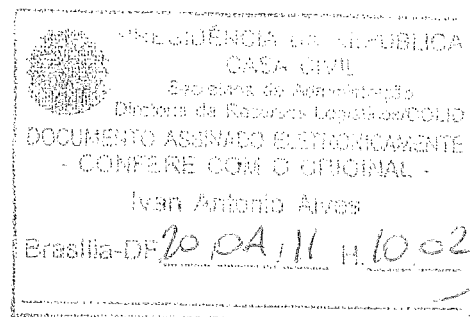 PRESIDÊNCIA DA REPÚBLICA
CASA CIVIL
Secretaria de Administração
Diretoria de Recursos Logísticos/COLID
DOCUMENTO ASSINADO ELETRONICAMENTE
- CONFERE COM O ORIGINAL -
Ivan Antonio Alves
Brasília-DF, 20,04,11 H. 10:02